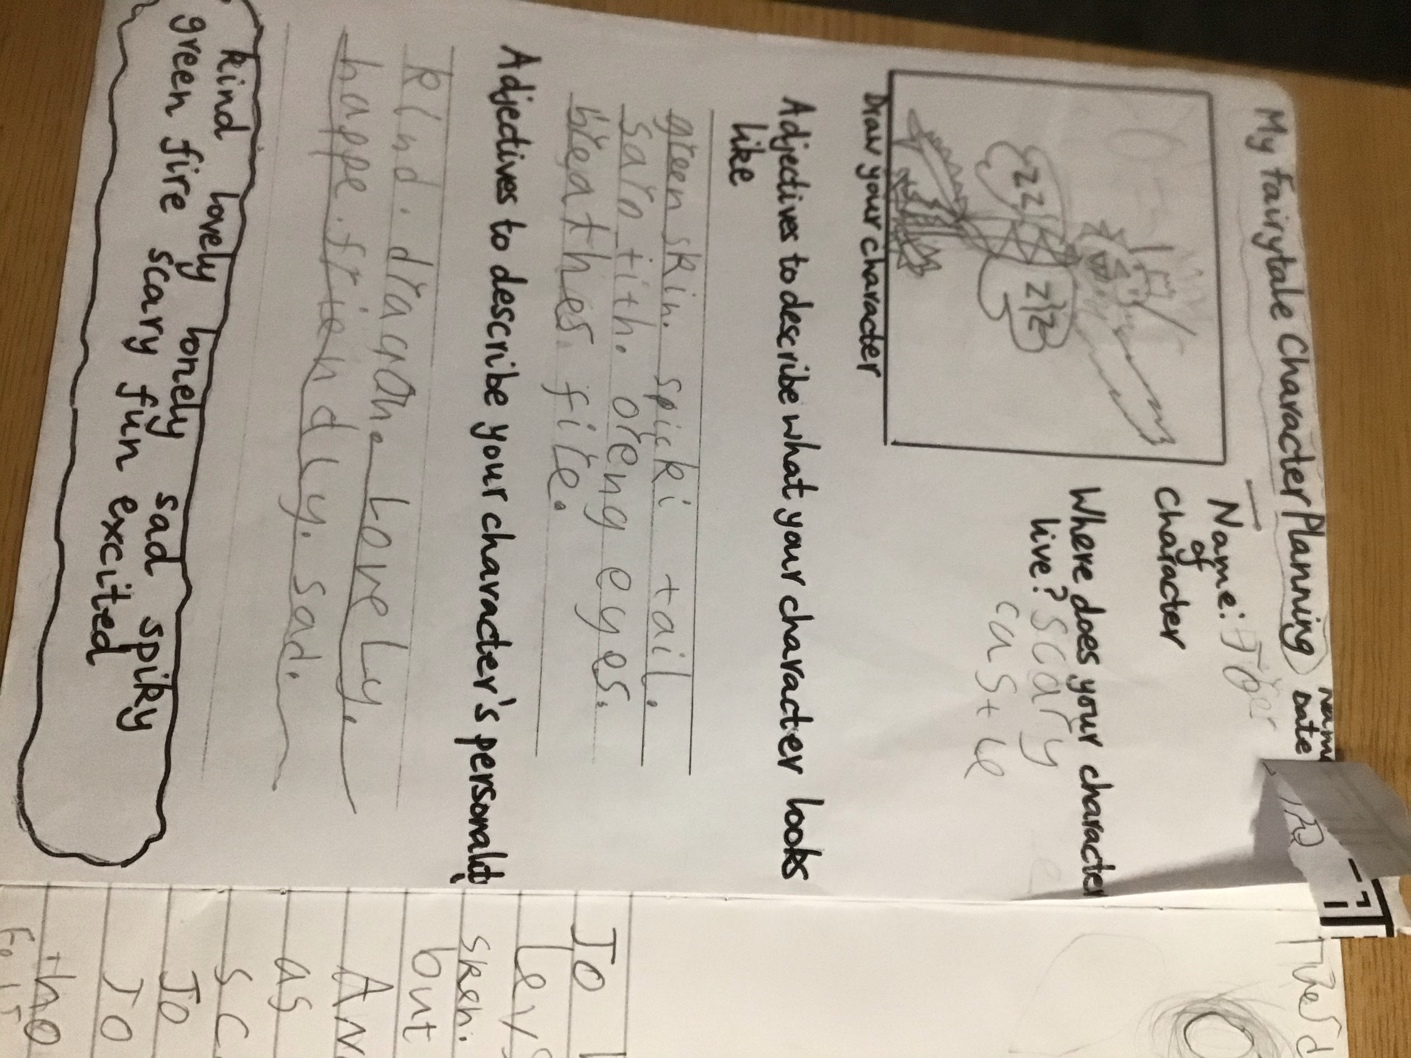 My Fairytale Character Planning
Name
Date
Name:
of
Character
Where does your character
live? scary
castle
zz zz
Draw your character
Adjectives to describe what your character looks
like
green skin. spicki tail.
sarp tith. oreng eyes.
breathes. fire.
Adjectives to describe your character's personalit
kind. dragan. Lonely.
happe. friendly. sad.
kind lovely lonely sad spiky
green fire scary fun excited
JO
sken.
but
AN
as
SC
JO
JO
tho